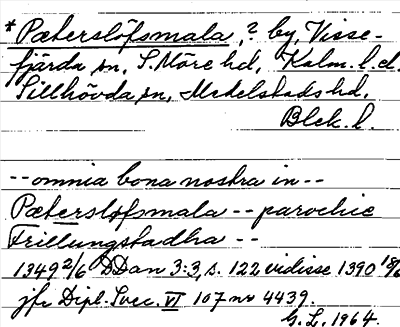 *Pæterslöfsmala, ? by, Visse-
fjärda sn, S. Möre hd, Kalm. l. el.
Sillhövda sn, Medelstads hd.
Blek. l.
-- omnia bona nostra in --
Pætersløfsmala -- parochie
Trillungstadha --
1349 2/6 DDan 3:3, s. 122 vidisse 1390 18/6
jfr Dipl. Svec. VI 107 nr 4439.
G. L. 1964.